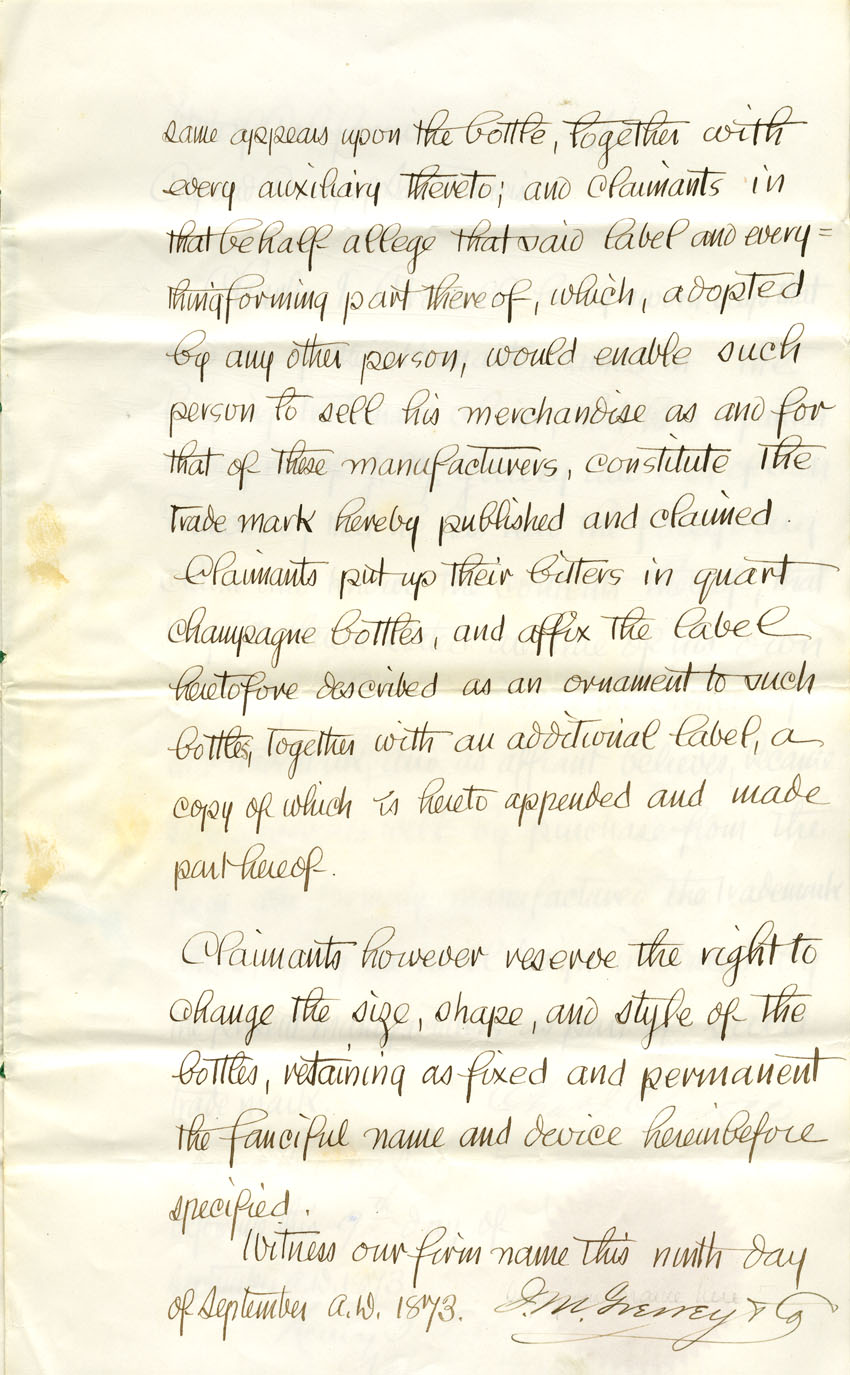 same appears upon the bottle, together with
every auxiliary thereto; and claimants in
that behalf allege that said label and every=
thing forming part thereof, which, adopted
by any other person, would enable such
person to sell his merchandise as and for
that of these manufacturers, constitute the
trade mark hereby published and claimed.
Claimants put up their bitters in quart
champagne bottles, and affix the label
heretofore described as an ornament to such
bottles, together with an additional label, a
copy of which is hereto appended and made
part hereof.
Claimants however reserve the right to
change the size, shape, and style of the
bottles, retaining as fixed and permanent
the fanciful name and device hereinbefore
specified.
Witness our firm name this ninth day
of September A.D. 1873. & Co